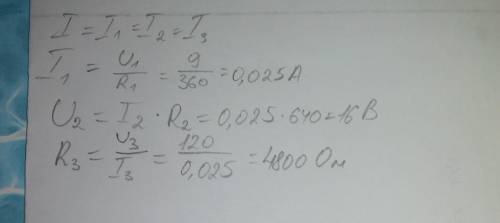 I = I₁ = I₂ = I₃
I₁ = U₁/R₁ = 9/360 = 0,025 A
U₂ = I₂ · R₂ = 0,025 · 640 = 16 В
R₃ = U₃/I₃ = 120/0,025 = 4800 Ом